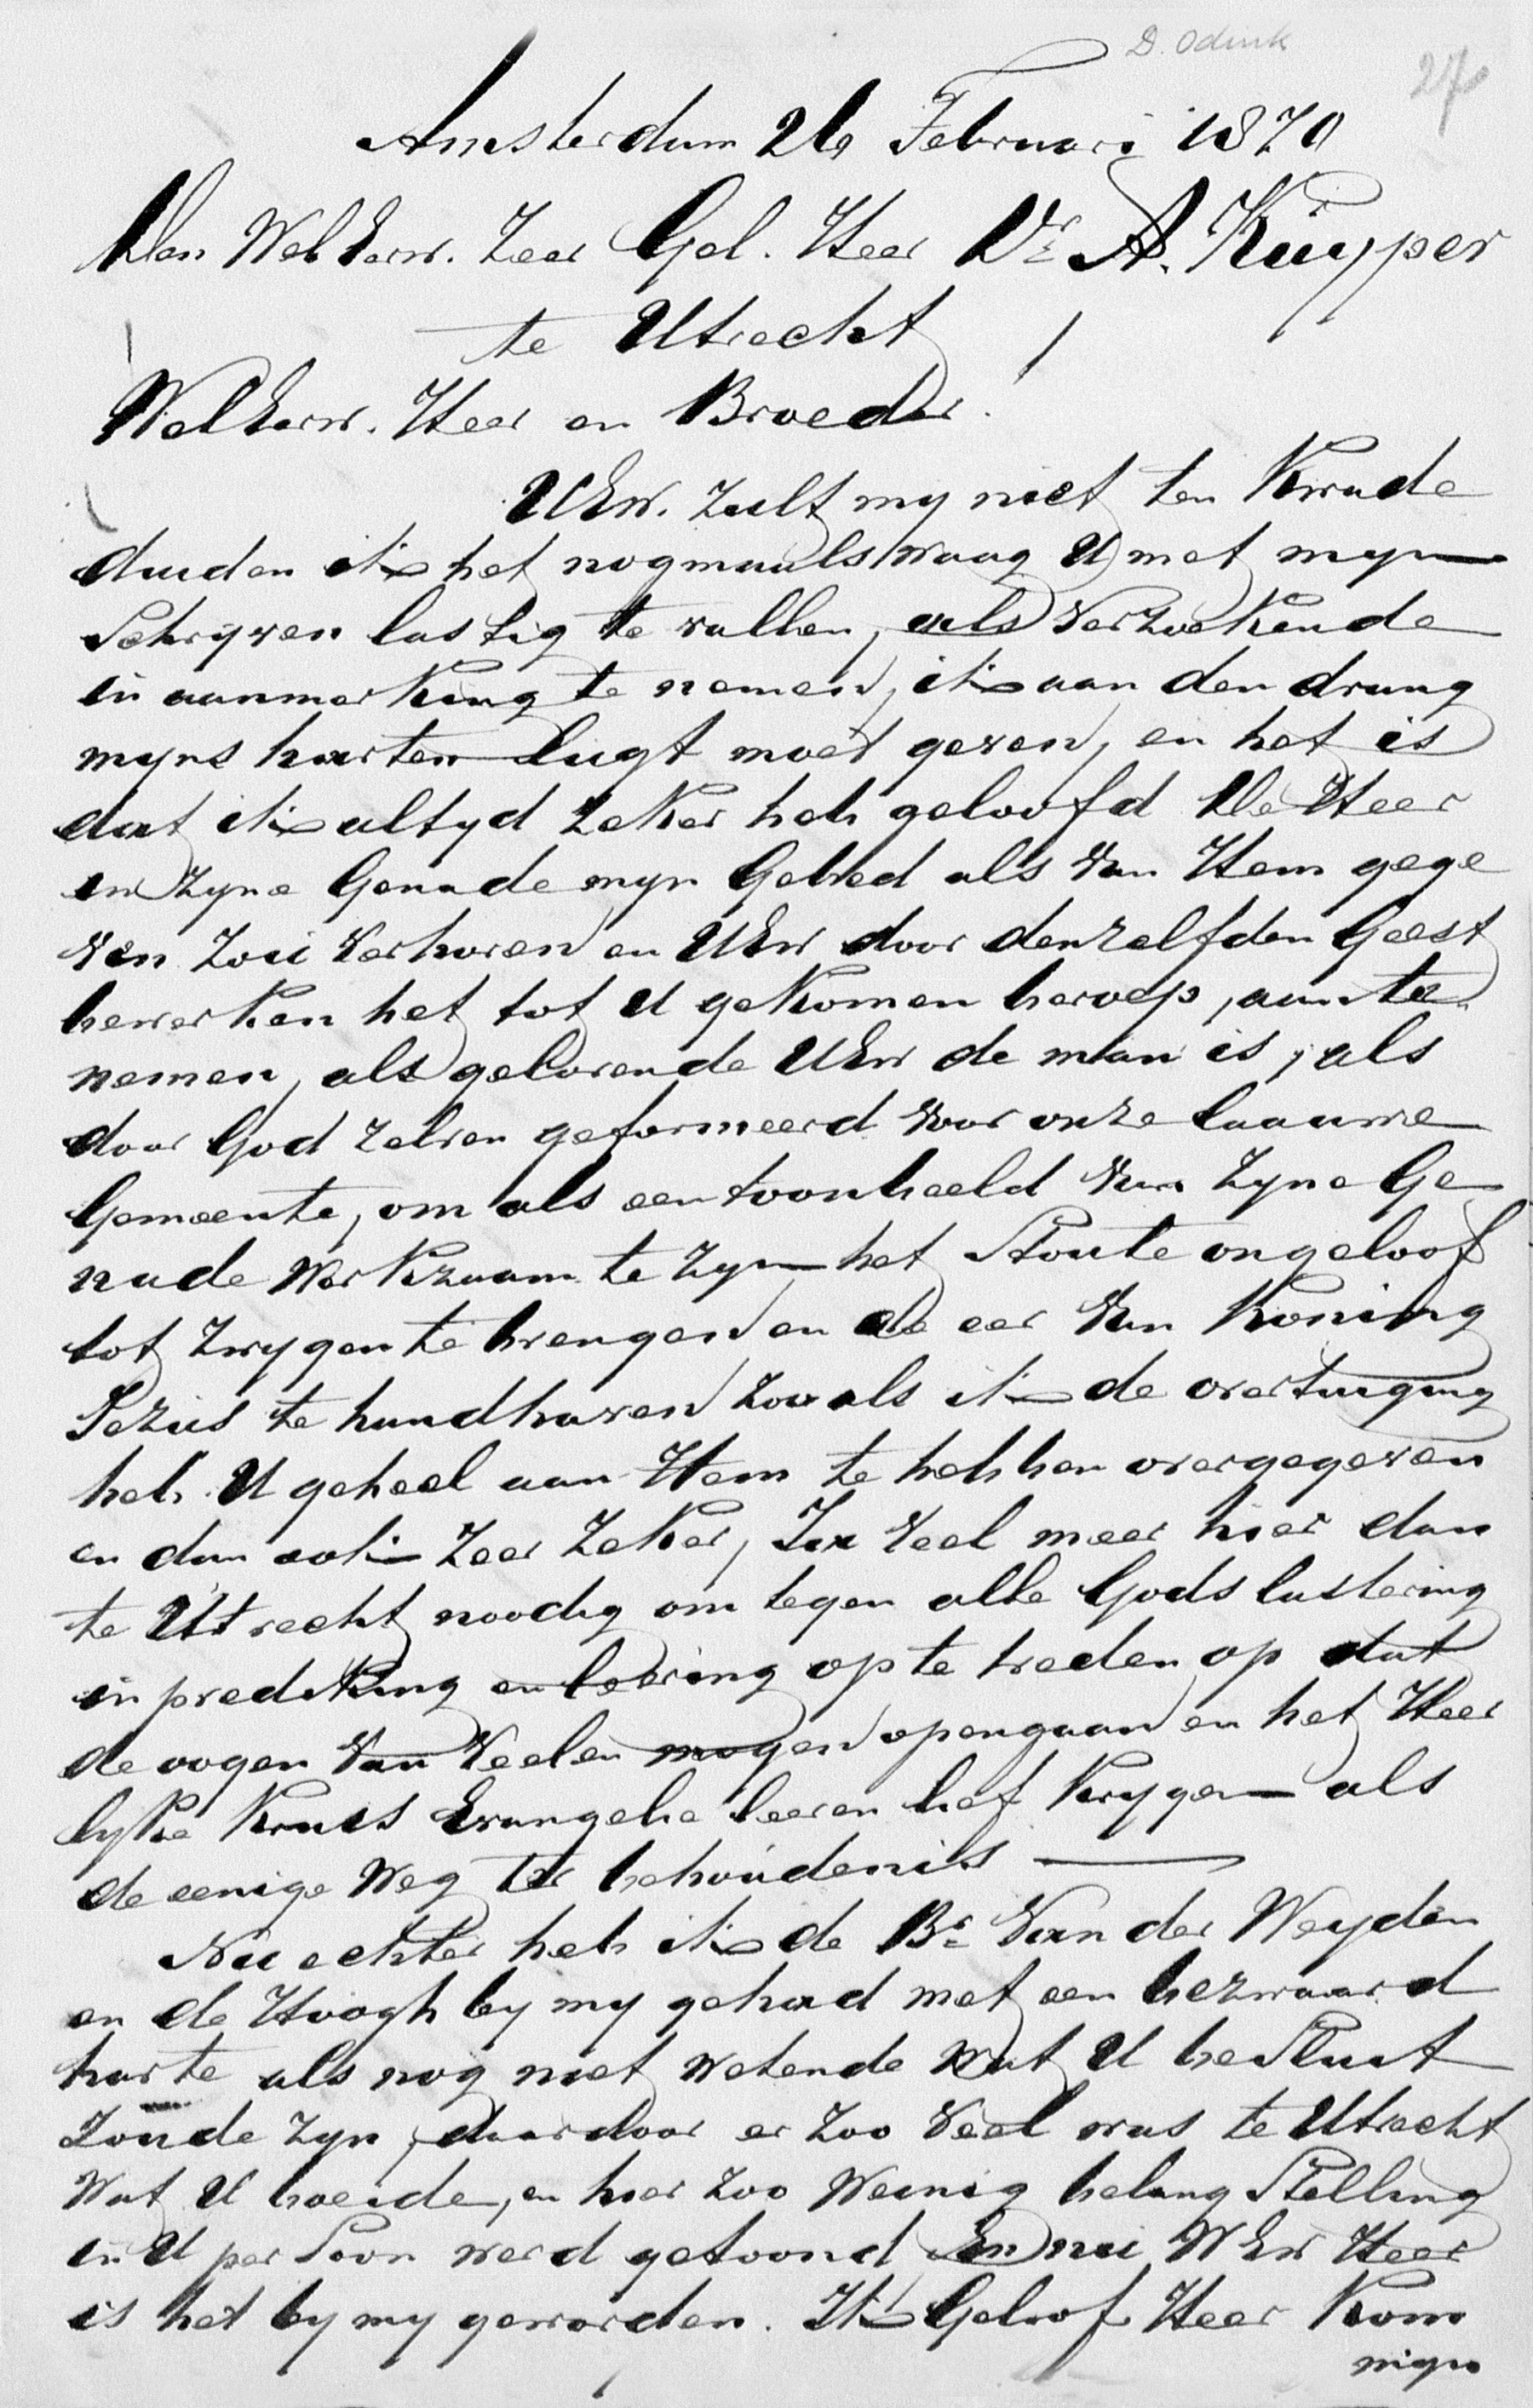 D. Odink
27
Amsterdam 26 Februari 1870
Den WelEerw. Zeer Gel. Heer Dr A. Kuyper
te Utrecht
WelEerw. Heer en Broeder!
UEw. zult my niet ten Kwade
duiden ik het nogmaals waag U met myn
Schryven lastig te vallen, als verzoekende
in aanmerking te nemen, ik aan den drang
myns harten lugt moet geven, en het is
dat ik altyd zeker heb geloofd De Heer
in zyne Genade myn Gebed als van Hem gege
ven zou verhoren en UEw door denzelfden Geest
bewerken het tot U gekomen beroep, aan te
nemen, als gelovende UEw de man is, als
door God zelven geformeerd voor onze laauwe
Gemeente, om als een toonbeeld van zyne Ge
nade werkzaam te zyn het Stoute ongeloof
tot zwygen te brengen en de eer van Koning
Jezus te handhaven zoo als ik de overtuiging
heb U geheel aan Hem te hebben overgegeven
en dan ook zeer zeker, Ja veel meer hier dan
te Utrecht noodig om tegen alle Godslastering
in prediking en leering op te treden op dat
de oogen van veelen mogen opengaan en het Heer
lyke Kruis Evangelie leeren lief krygen als
de eenige weg ter behoudenis
Nu echter heb ik de Br van der Weyden
en de Hoogh by my gehad met een bezwaard
harte als nog niet wetende wat U besluit
zoude zyn, daardoor er zoo veel was te Utrecht
wat U boeide, en hier zoo weinig belang Stelling
in U persoon werd getoond En nu WEw Heer
is het by my geworden. Ik Geloof Heer Kom
mijn